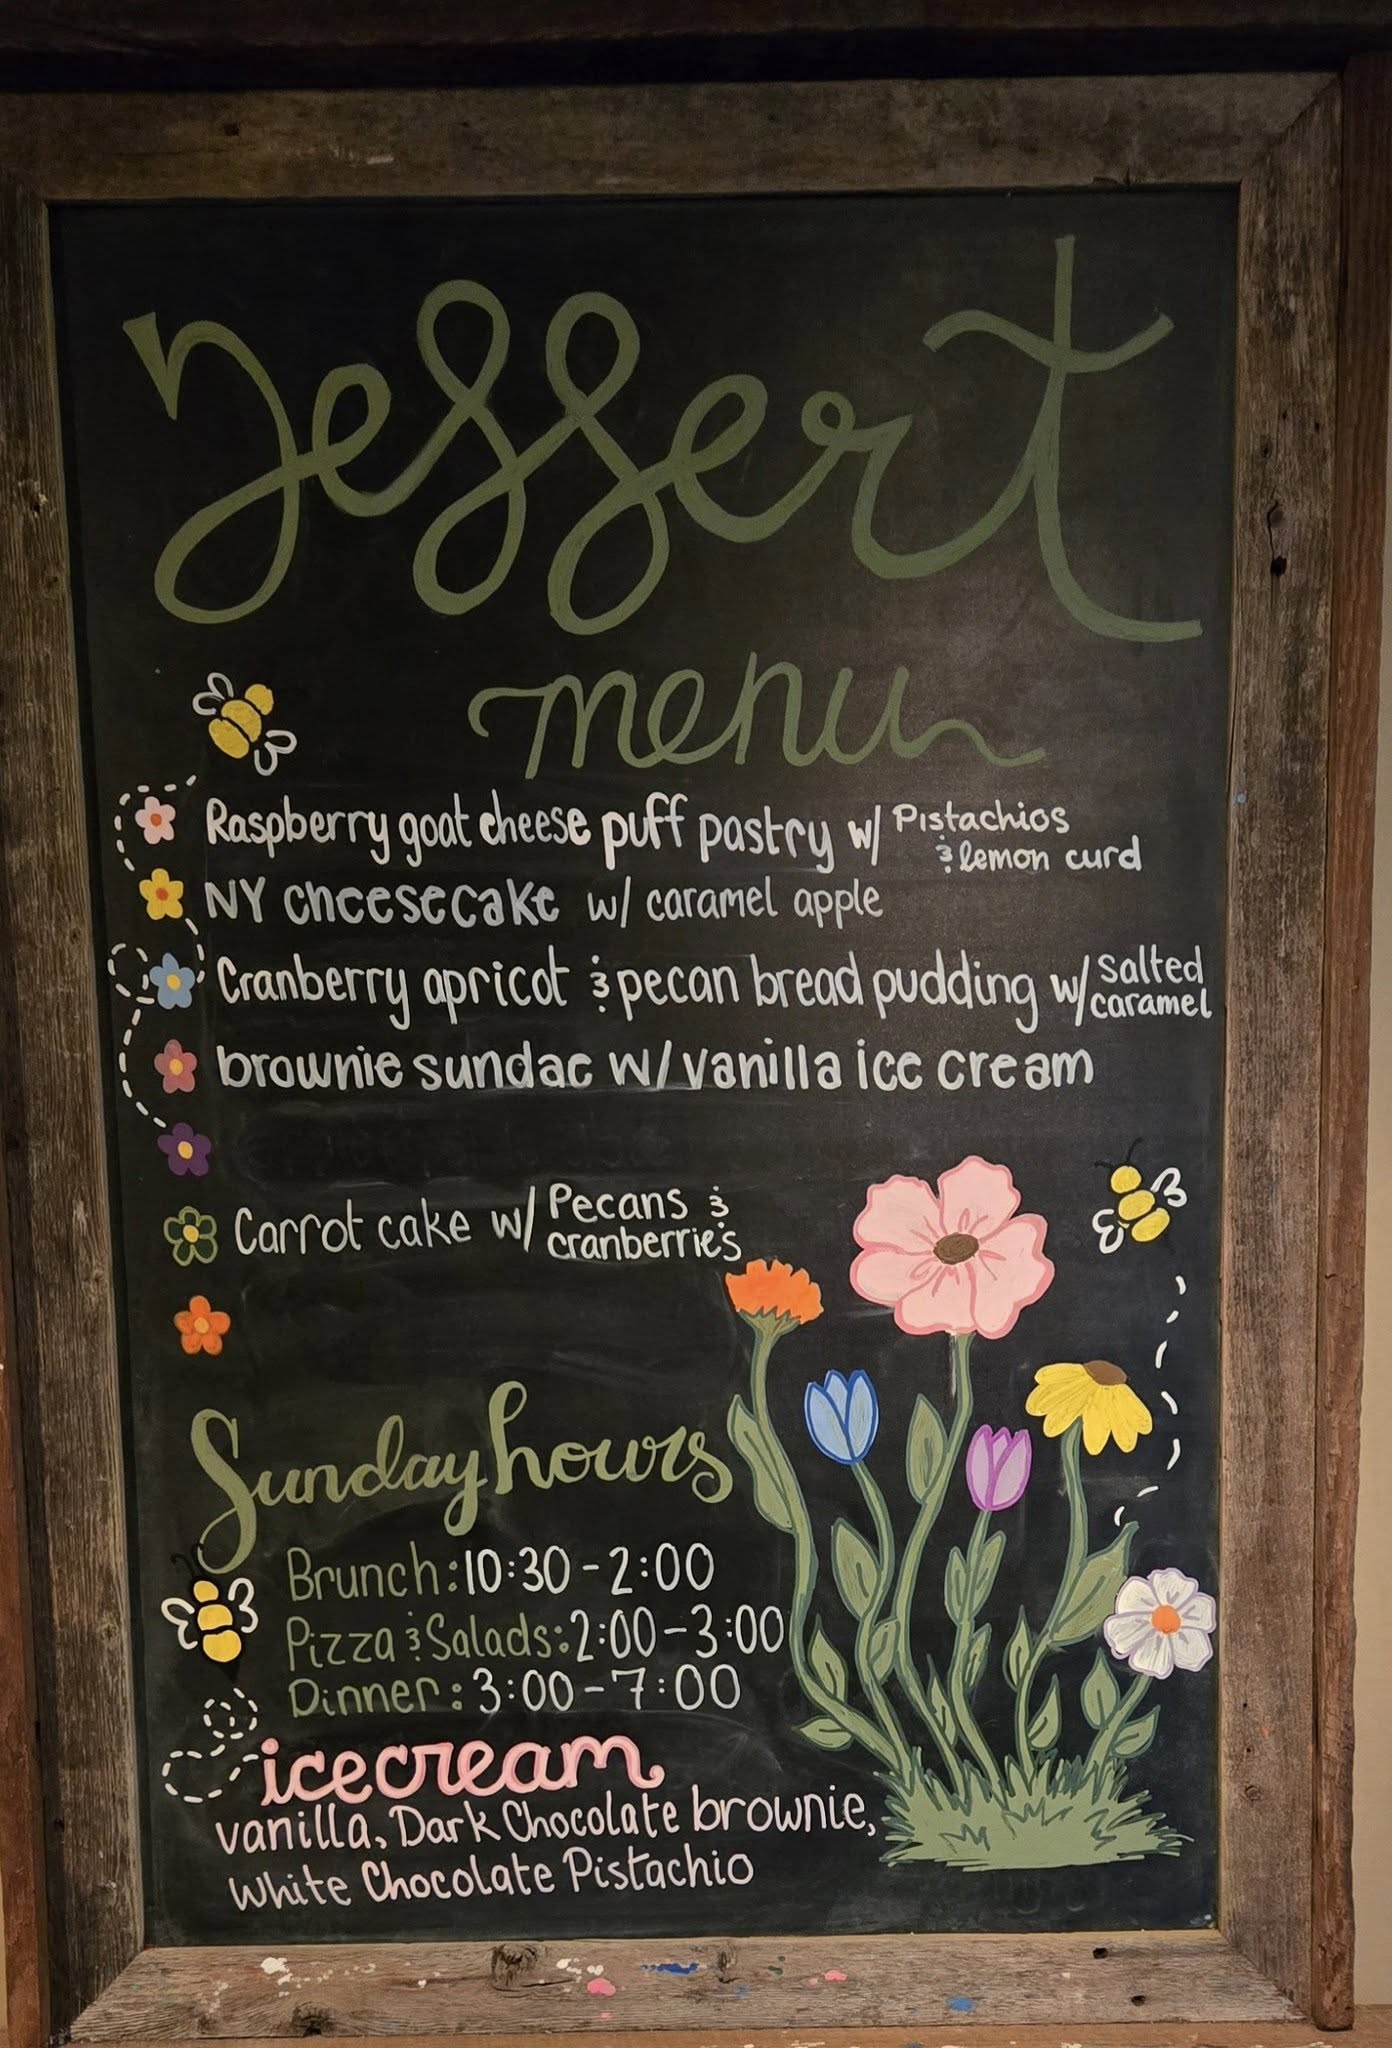 Dessert
menu
Raspberry goat cheese puff pastry w/ Pistachios
& lemon curd
NY cheesecake w/ caramel apple
Cranberry apricot & pecan bread pudding w/ salted
caramel
brownie sundae w/ vanilla ice cream
Carrot cake w/ Pecans &
cranberrie's
Sunday hours
Brunch: 10:30 - 2:00
Pizza & Salads: 2:00 - 3:00
Dinner: 3:00 - 7:00
ice cream
vanilla, Dark Chocolate brownie,
White Chocolate Pistachio